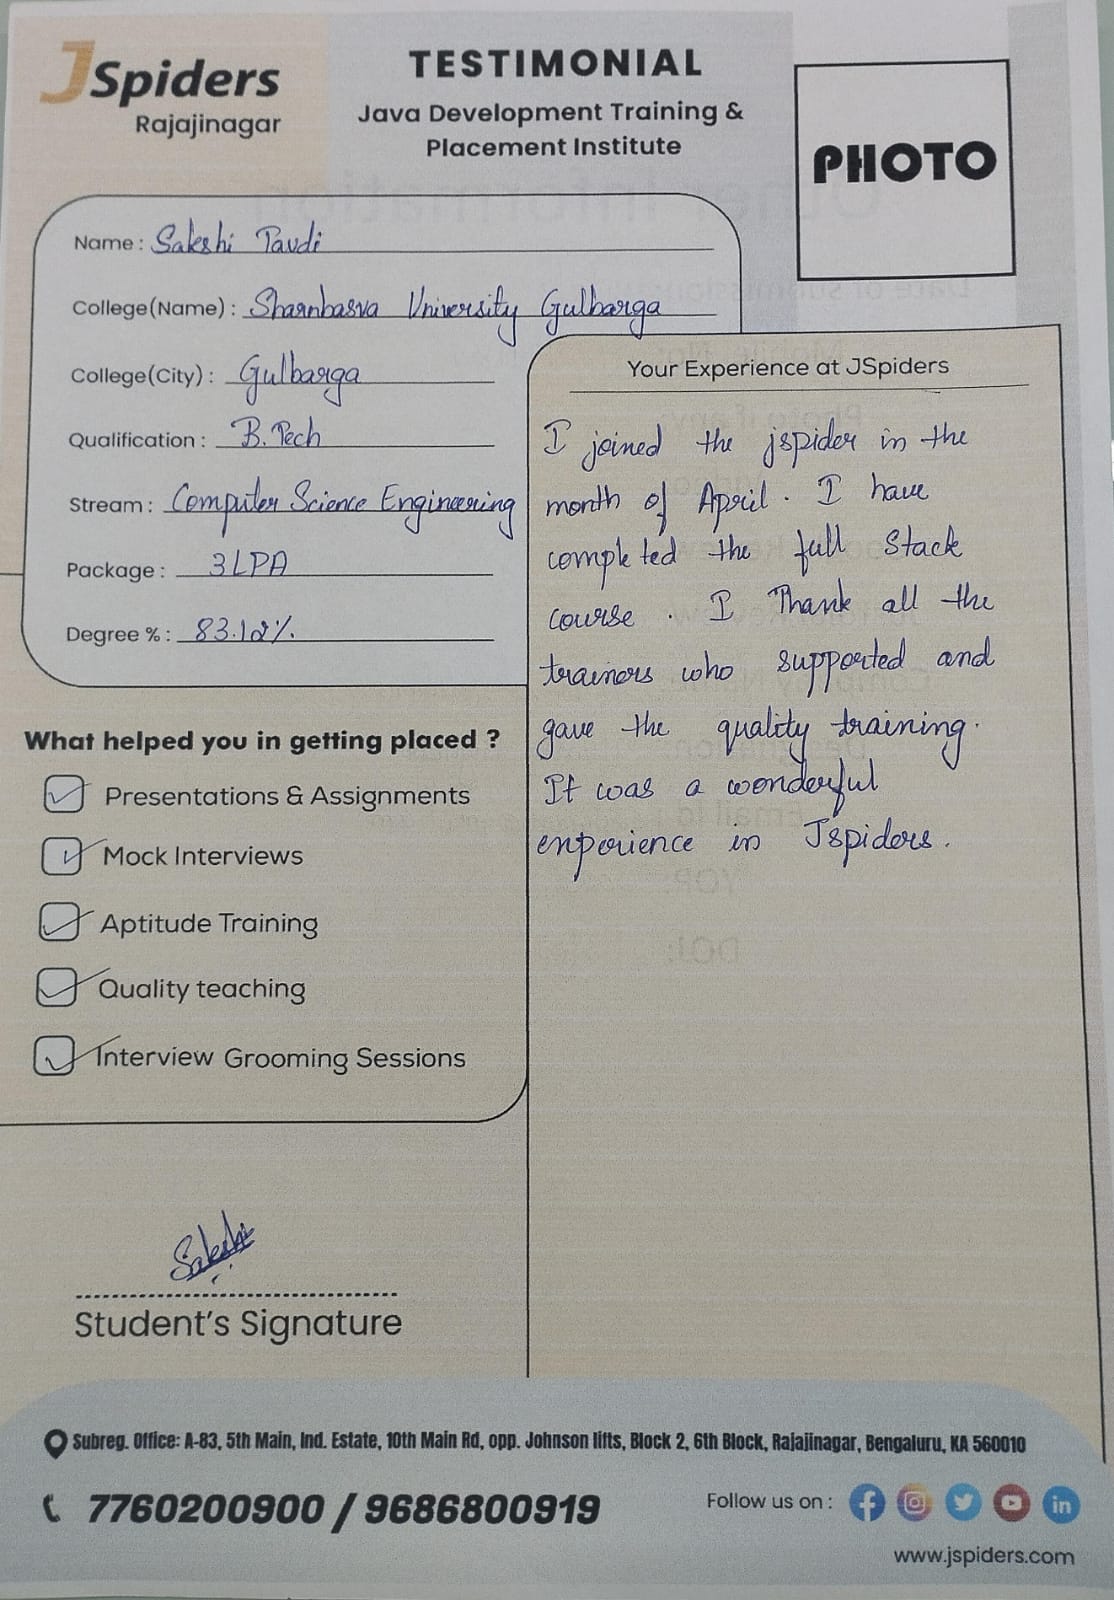 JSpiders
Rajajinagar
TESTIMONIAL
Java Development Training &
Placement Institute
PHOTO
Name : Sakshi Pavdi
College(Name) : Sharnbasva University Gulbarga
College(City) : Gulbarga
Qualification : B.Tech
Stream : Computer Science Engineering
Package : 3LPA
Degree % : 83.12%
What helped you in getting placed ?
Presentations & Assignments
Mock Interviews
Aptitude Training
Quality teaching
Interview Grooming Sessions
Your Experience at JSpiders
I joined the jspider in the
month of April. I have
completed the full Stack
course. I Thank all the
trainers who supported and
gave the quality training.
It was a wonderful
experience in Jspiders.
Sakshi
Student's Signature
Subreg. Office: A-83, 5th Main, Ind. Estate, 10th Main Rd, opp. Johnson lifts, Block 2, 6th Block, Rajajinagar, Bengaluru, KA 560010
7760200900 / 9686800919
Follow us on :
www.jspiders.com